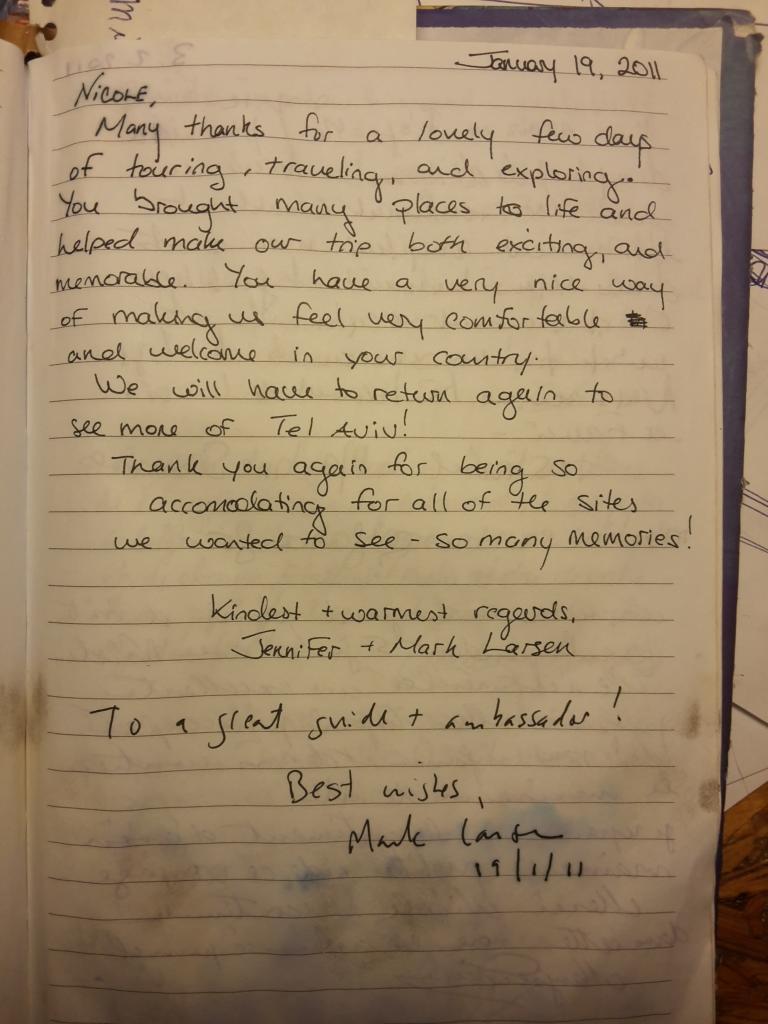 January 19, 2011
Nicole,
Many thanks for a lovely few days
of touring, traveling, and exploring.
You brought many places to life and
helped make our trip both exciting, and
memorable. You have a very nice way
of making us feel very comfortable
and welcome in your country.
We will have to return again to
see more of Tel Aviv!
Thank you again for being so
accomodating for all of the sites
we wanted to see - so many memories!
Kindest + warmest regards,
Jennifer + Mark Larsen
To a great guide + ambassador!
Best wishes,
Mark Larsen
19/1/11